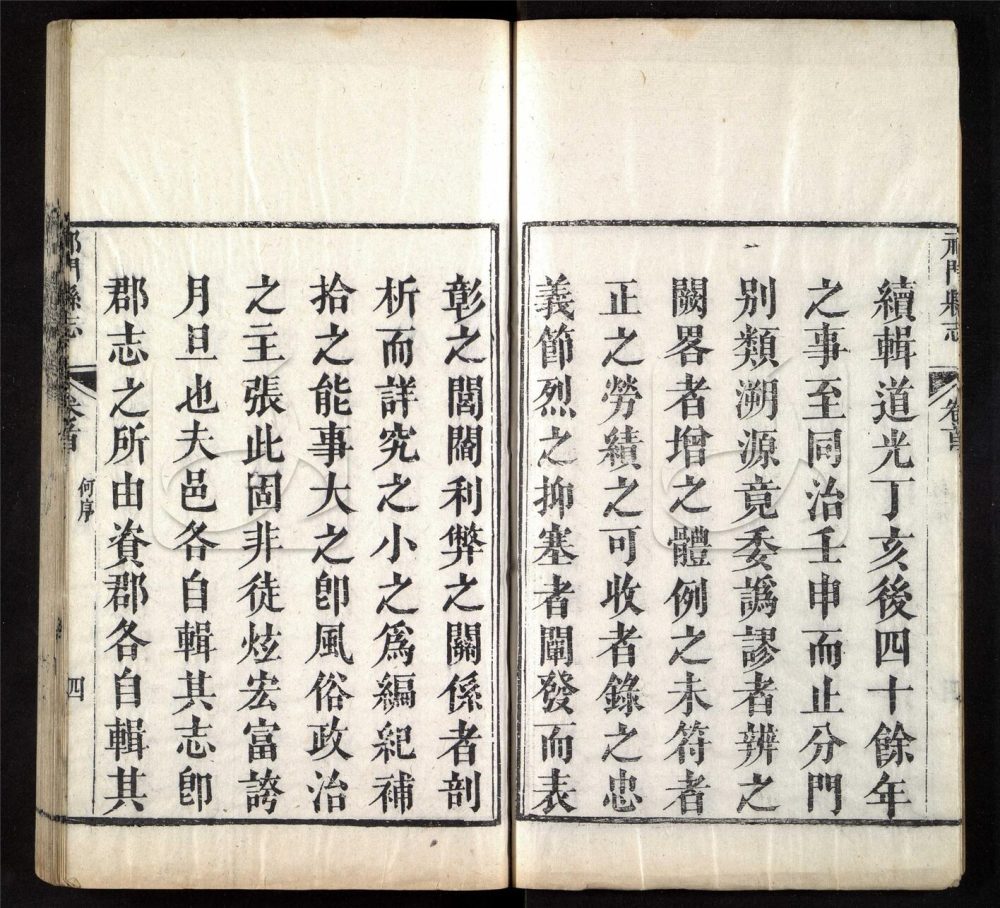 祁門縣志
卷首
續輯道光丁亥後四十餘年
之事至同治壬申而止分門
別類溯源竟委譌謬者辨之
闕畧者增之體例之未符者
正之勞績之可收者錄之忠
義節烈之抑塞者闡發而表
彰之閭閻利弊之關係者剖
析而詳究之小之爲編紀補
拾之能事大之卽風俗政治
之主張此固非徒炫宏富誇
月旦也夫邑各自輯其志卽
郡志之所由資郡各自輯其
祁門縣志
卷首
何序
四